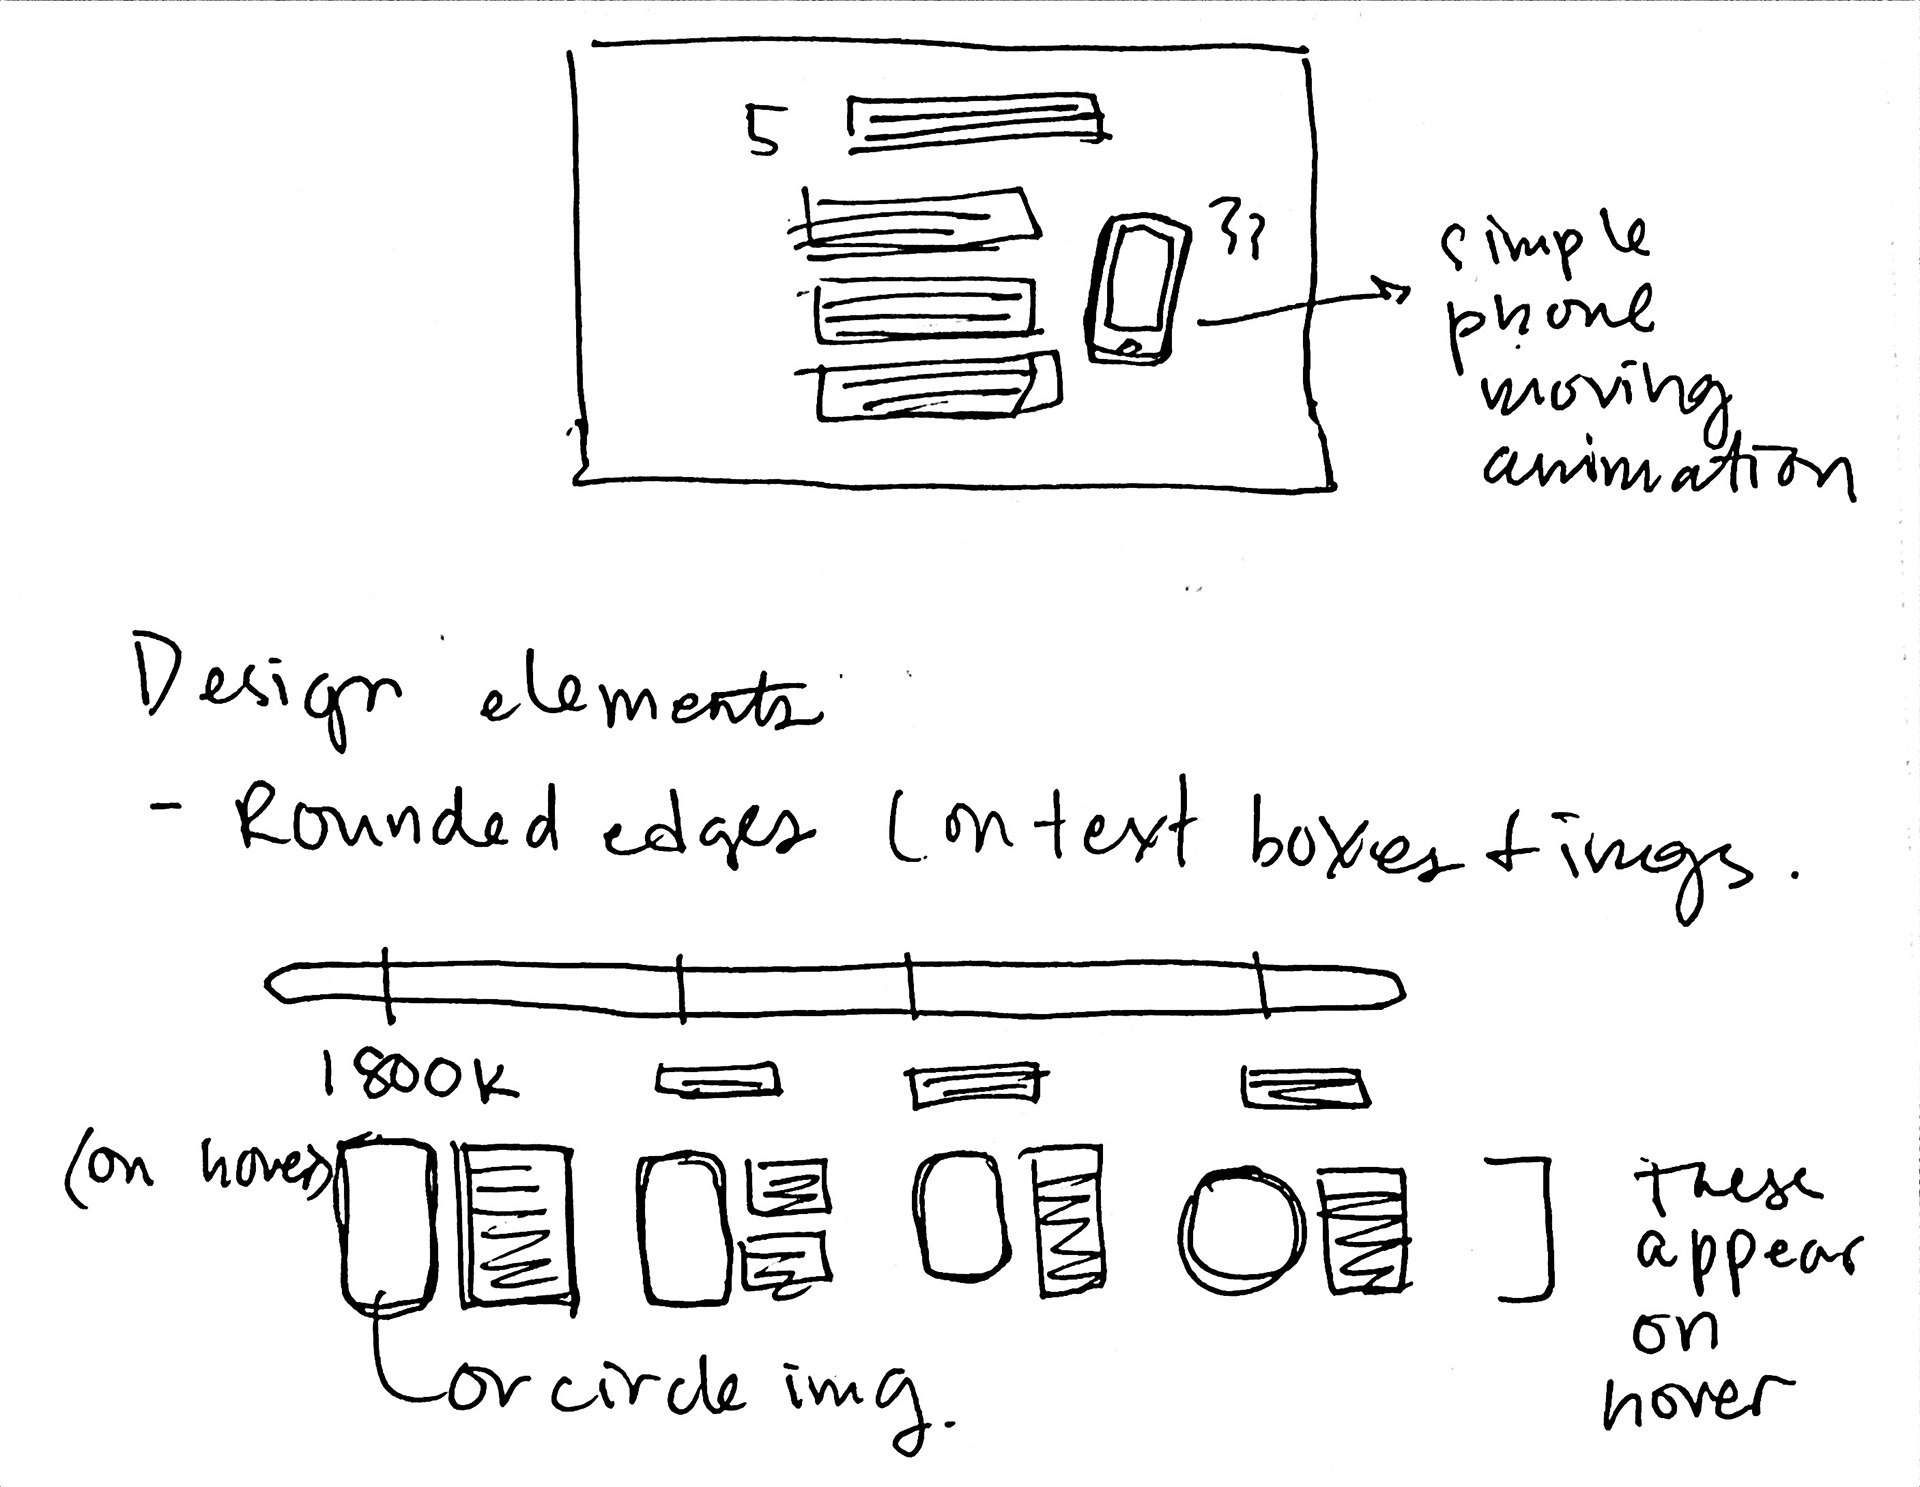 5
??
simple
phone
moving
animation
Design elements
- Rounded edges (on text boxes + imgs.
1800k
(on hover)
These
appear
on
hover
or circle img.